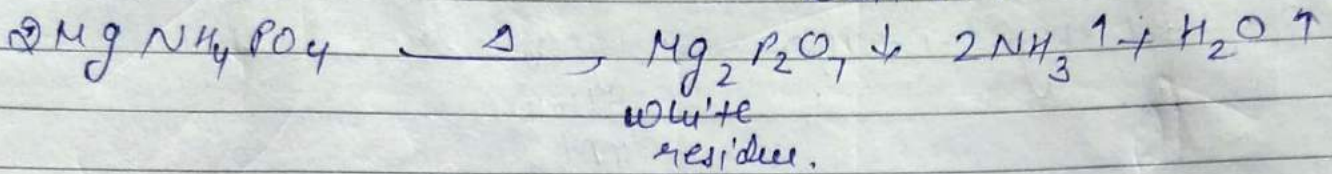 2Mg NH4 PO4 —Δ→ Mg2 P2O7 ↓ 2NH3 ↑ + H2O ↑
white
residue.